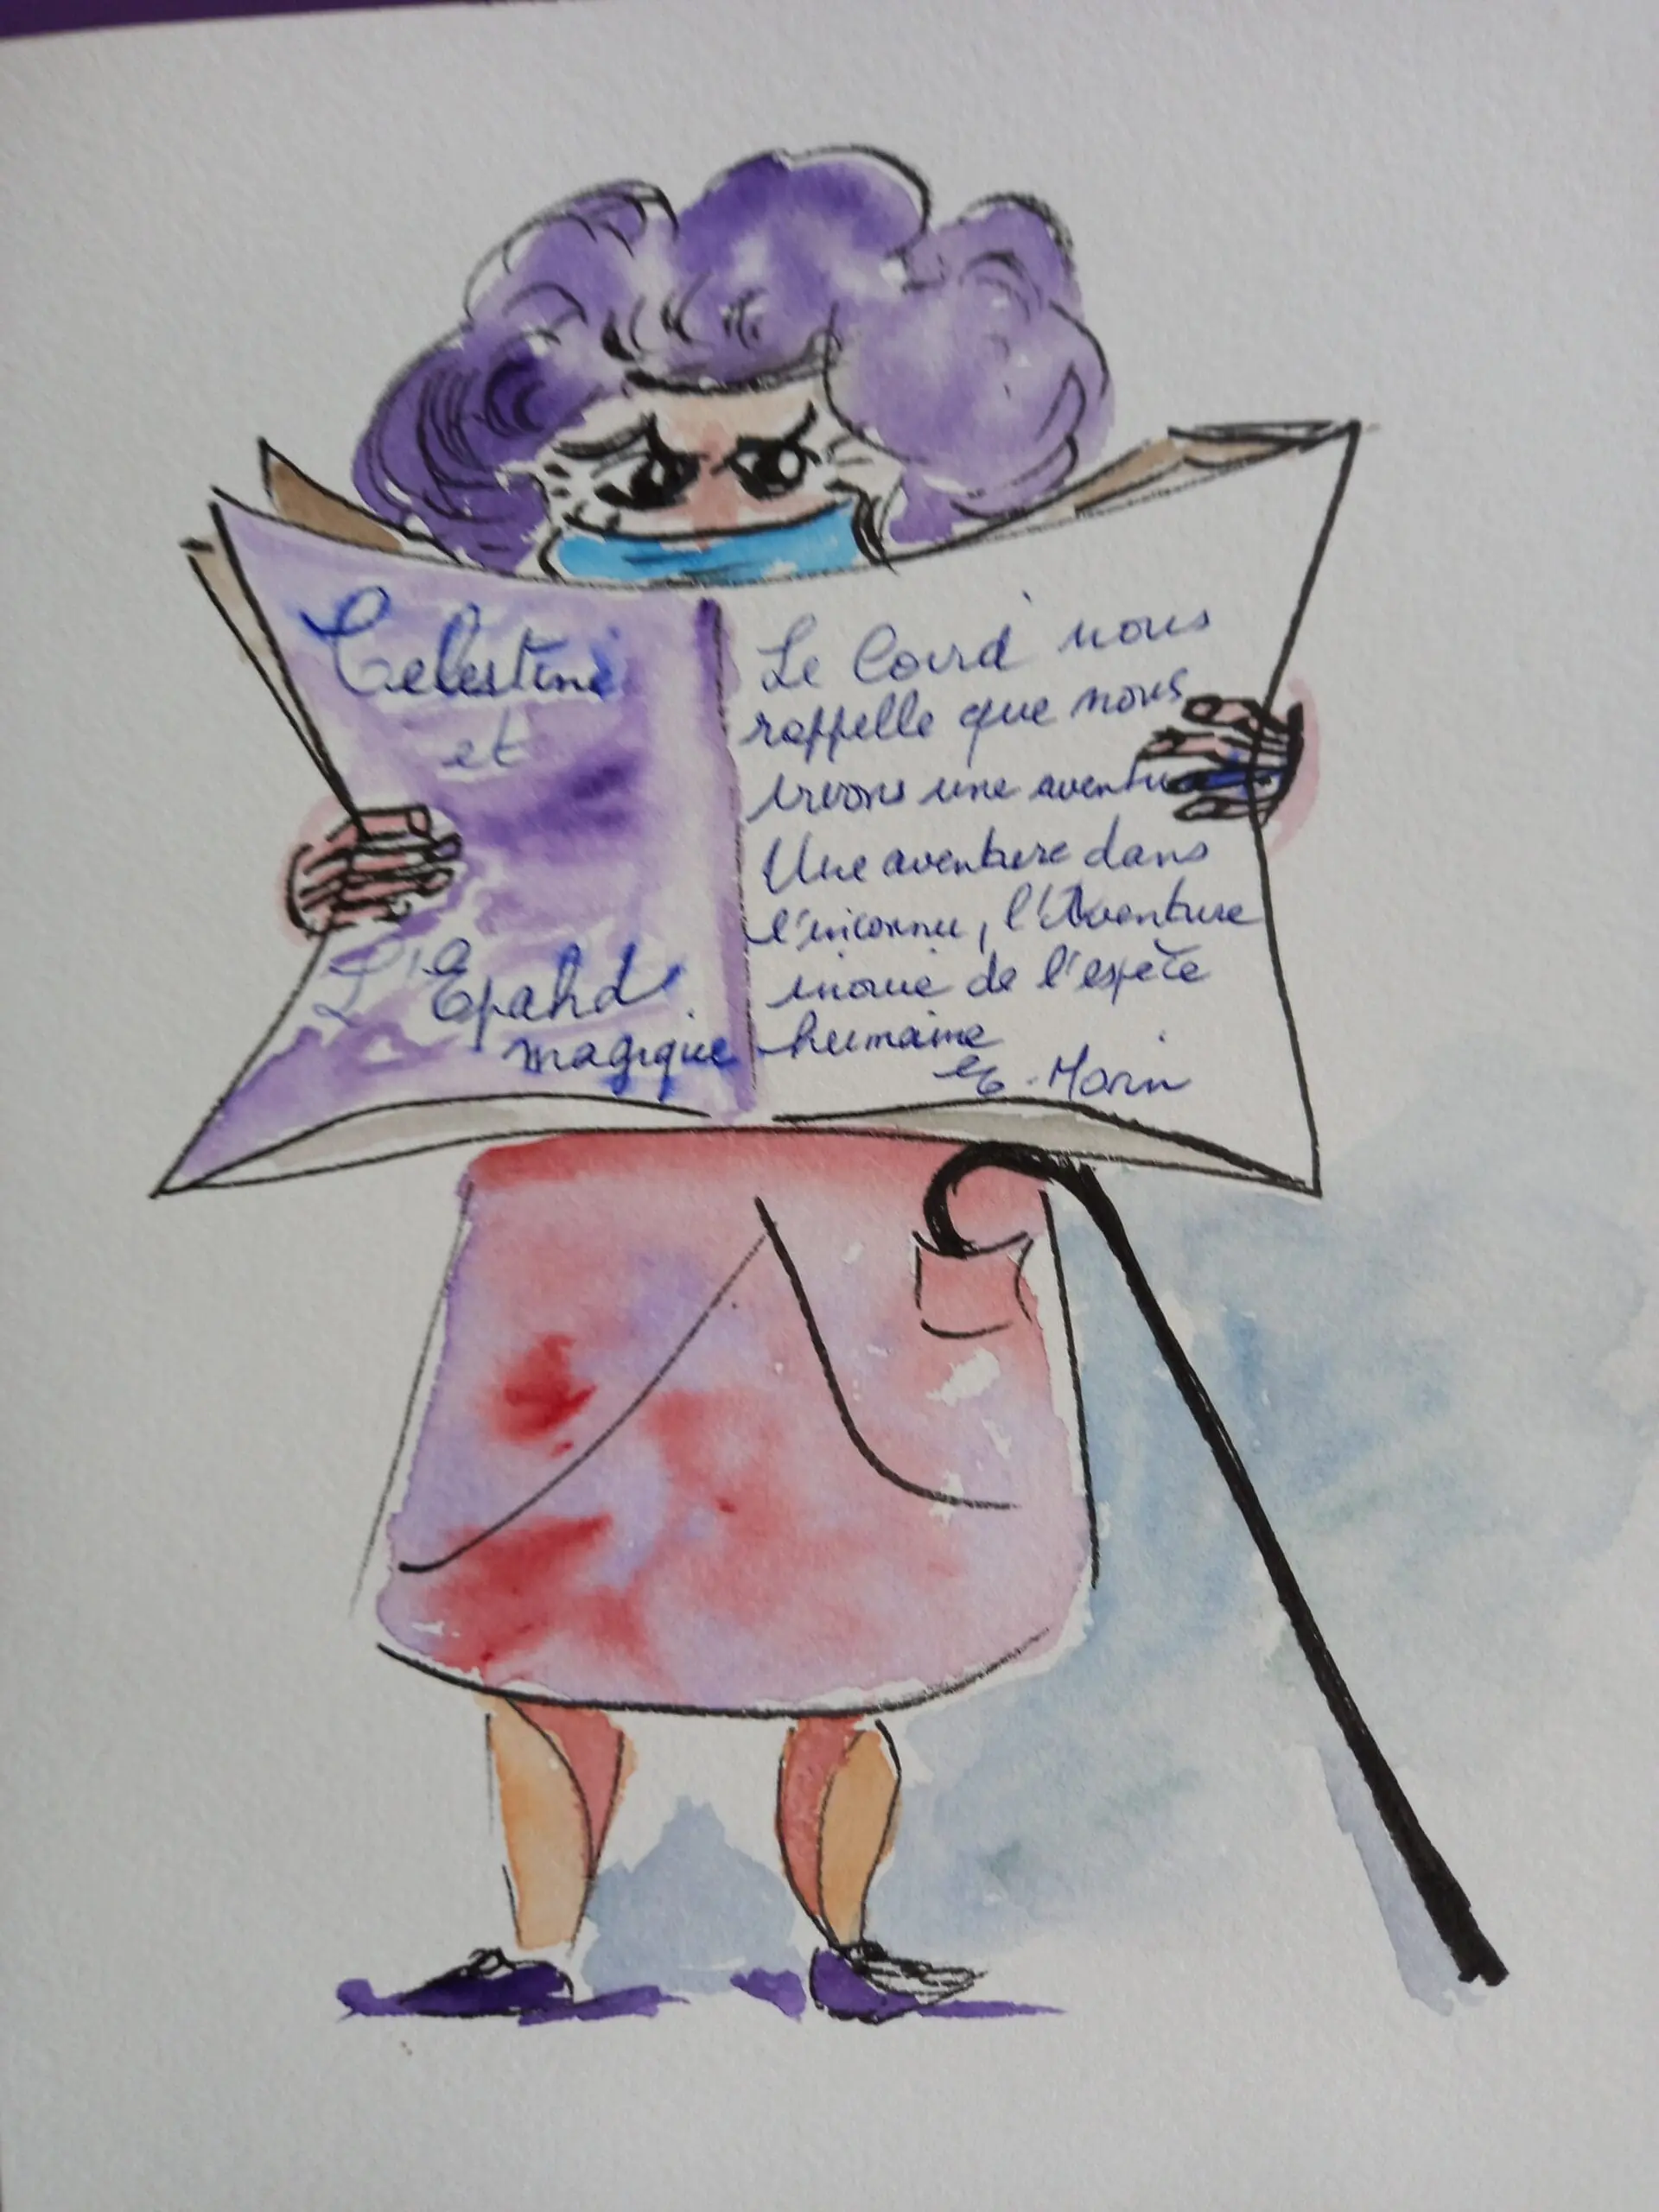 Celestine
et
L'Epahd
magique
Le Covid nous
rappelle que nous
vivons une aventu
Une aventure dans
l'inconnu, l'Aventure
inouïe de l'espèce
humaine
E. Morin